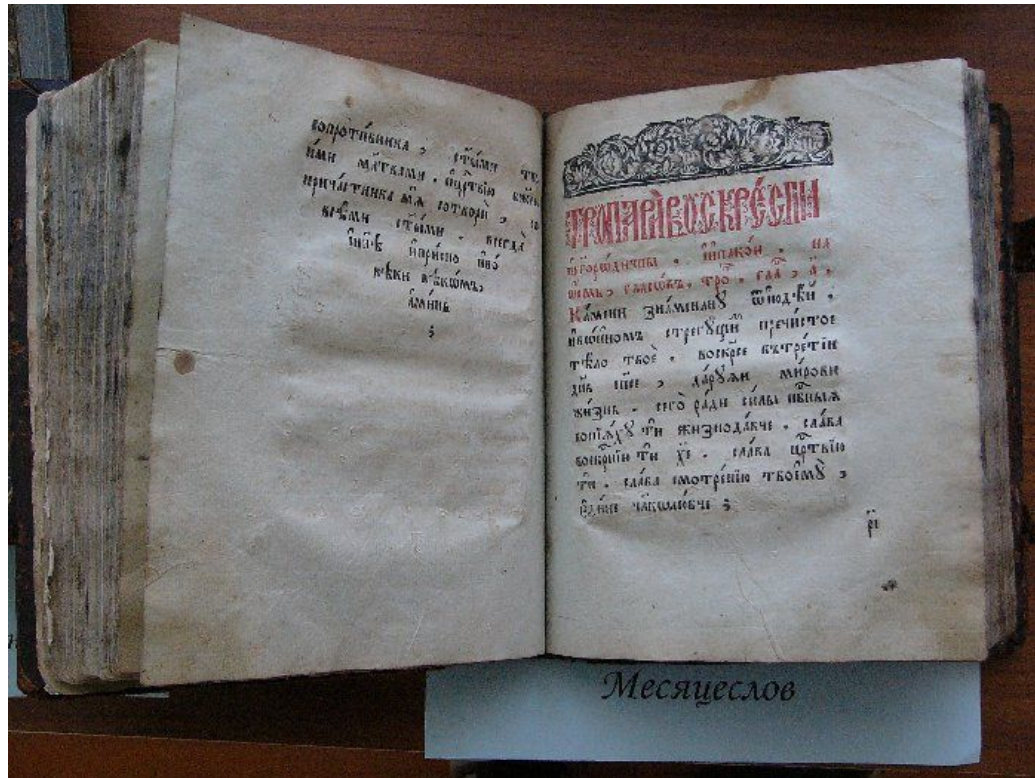 сопроти́вника , ст҃ы́ми тв
и́ми мл҃твами . и҆ цр҃твїю
прича́стника мѧ̀ сотворѝ , со
всѣ́ми ст҃ы́ми . всегда̀
ны́нѣ и҆ при́сно и҆ во́
вѣ́ки вѣкѡ́мъ ,
а҆ми́нь
ТРОПАРЍ ВОСКРЕ́СНИ
и҆ бг҃оро́дичны . и҆ и҆пакои̂ . на
ѻ҆́смь , гласѡ́въ . тро҇ . гла҇ , а҃ ,
Ка́мени зна́менанꙋ ѿ і҆юдѣ́й .
и҆ во́иномъ стрегꙋ́щи҇ пречи́стое
тѣ́ло твоѐ . воскр҃се въ тре́тїи
дн҃ь сп҃се , да́рꙋѧи ми́рови
жи́знь . сего̀ ра́ди си́лы нб҃ныѧ
вопїѧ́хꙋ тѝ жизнода́вче . сла́ва
воскр҃нїю тѝ хе҃ . сла́ва цр҃твїю
тѝ . сла́ва смотре́нїю твоемꙋ̀ ,
є҆ди́не чл҃вколю́бче ;
р҃і
Месяцеслов